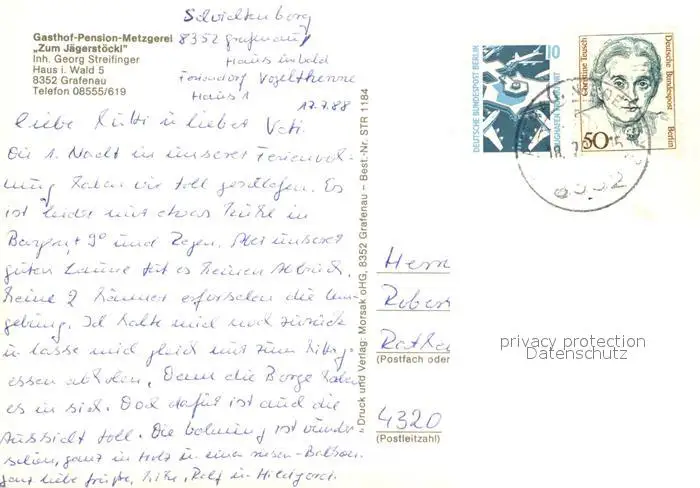 Gasthof-Pension-Metzgerei
"Zum Jägerstöckl"
Inh. Georg Streifinger
Haus i. Wald 5
8352 Grafenau
Telefon 08555/619
8352 Grafenau
Haus im Wald
Feriendorf
Haus 1
17.7.88
Liebe Mutti u lieber Vati.
Die 1. Nacht in unserer Ferienwoh-
nung haben wir toll geschlafen. Es
ist leider nur etwas kühl in
Bayern, + 9° und Regen. Aber unserer
guten Laune tut es keinen Abbruch.
Meine 2 Männer erforschen die Um-
gebung. Ich halte mich noch zurück
u lasse mich gleich nur zum Mittag-
essen abholen. Denn die Berge haben
es in sich. Doch dafür ist auch die
Aussicht toll. Die Wohnung ist wunder-
schön, ganz in Holz u einen riesen-Balkon.
Ganz liebe Grüße, Ralf u Hildegard.
Druck und Verlag: Morsak oHG, 8352 Grafenau – Best.-Nr. STR 1184
DEUTSCHE BUNDESPOST BERLIN
10
FLUGHAFEN FRANKFURT
Christine Teusch
Deutsche Bundespost
Berlin
50
8352
Herrn
Robert
(Postfach oder
4320
(Postleitzahl)
privacy protection
Datenschutz